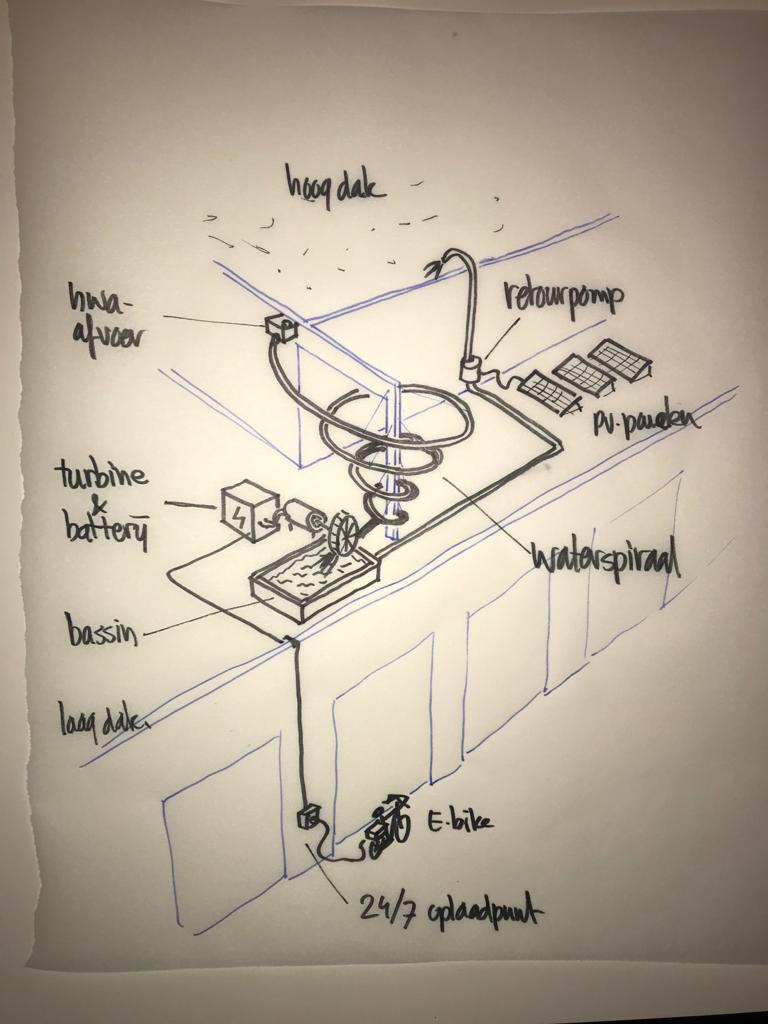 hoog dak
hwa-
afvoer
retourpomp
pv. panelen
turbine
&
battery
waterspiraal
bassin
laag dak.
E-bike
24/7 oplaadpunt